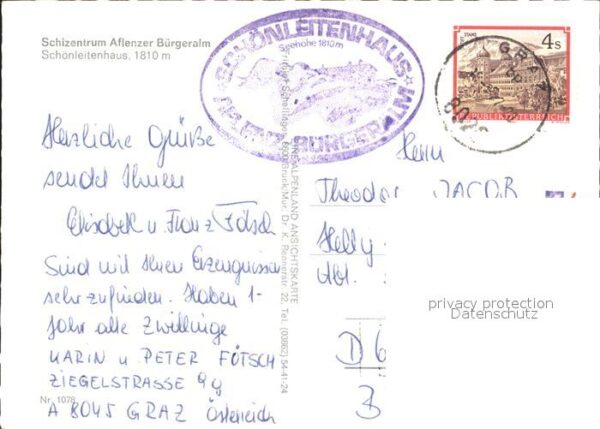 Schizentrum Aflenzer Bürgeralm
Schönleitenhaus, 1810 m
SCHÖNLEITENHAUS
Seehöhe 1810 m
BÜRGERALM
STANS
4 S
REPUBLIK ÖSTERREICH
GRAZ
Herzliche Grüße
sendet Ihnen
Elisabeth u. Franz Fötsch
Sind mit Ihren Erzeugnissen
sehr zufrieden. Haben 1-
Jahr alte Zwillinge
KARIN u PETER FÖTSCH
ZIEGELSTRASSE 9g
A 8045 GRAZ Österreich
Nr. 1078
ALPENLAND ANSICHTSKARTE
8600 Bruck/Mur, Dr. K. Rennerstr. 22, Tel. (03862) 54-41-24
Herrn
Theodor JACOB
Abt.
D 6
privacy protection
Datenschutz